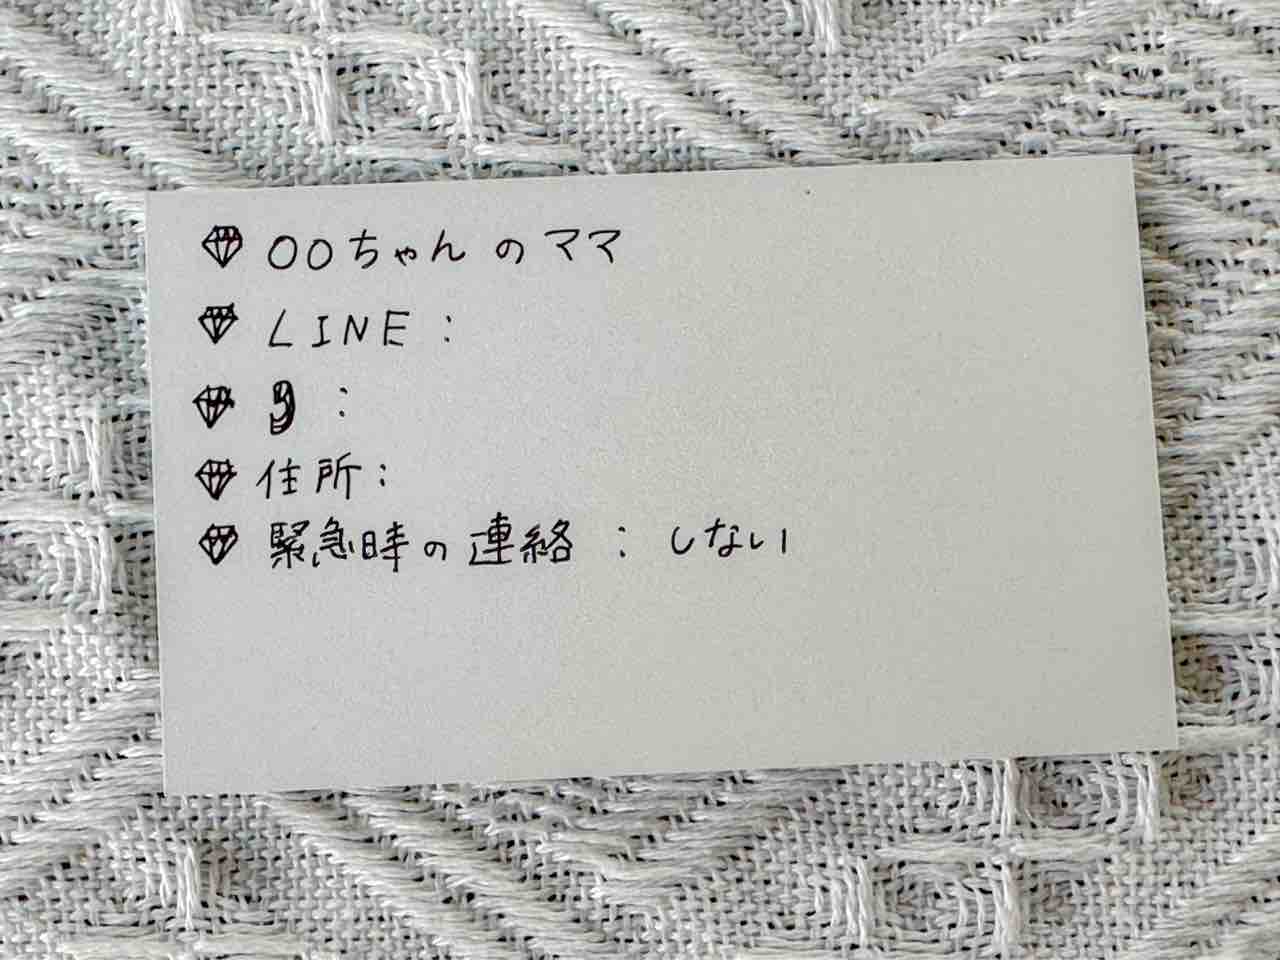 〇〇ちゃんのママ
LINE：
：
住所：
緊急時の連絡：しない